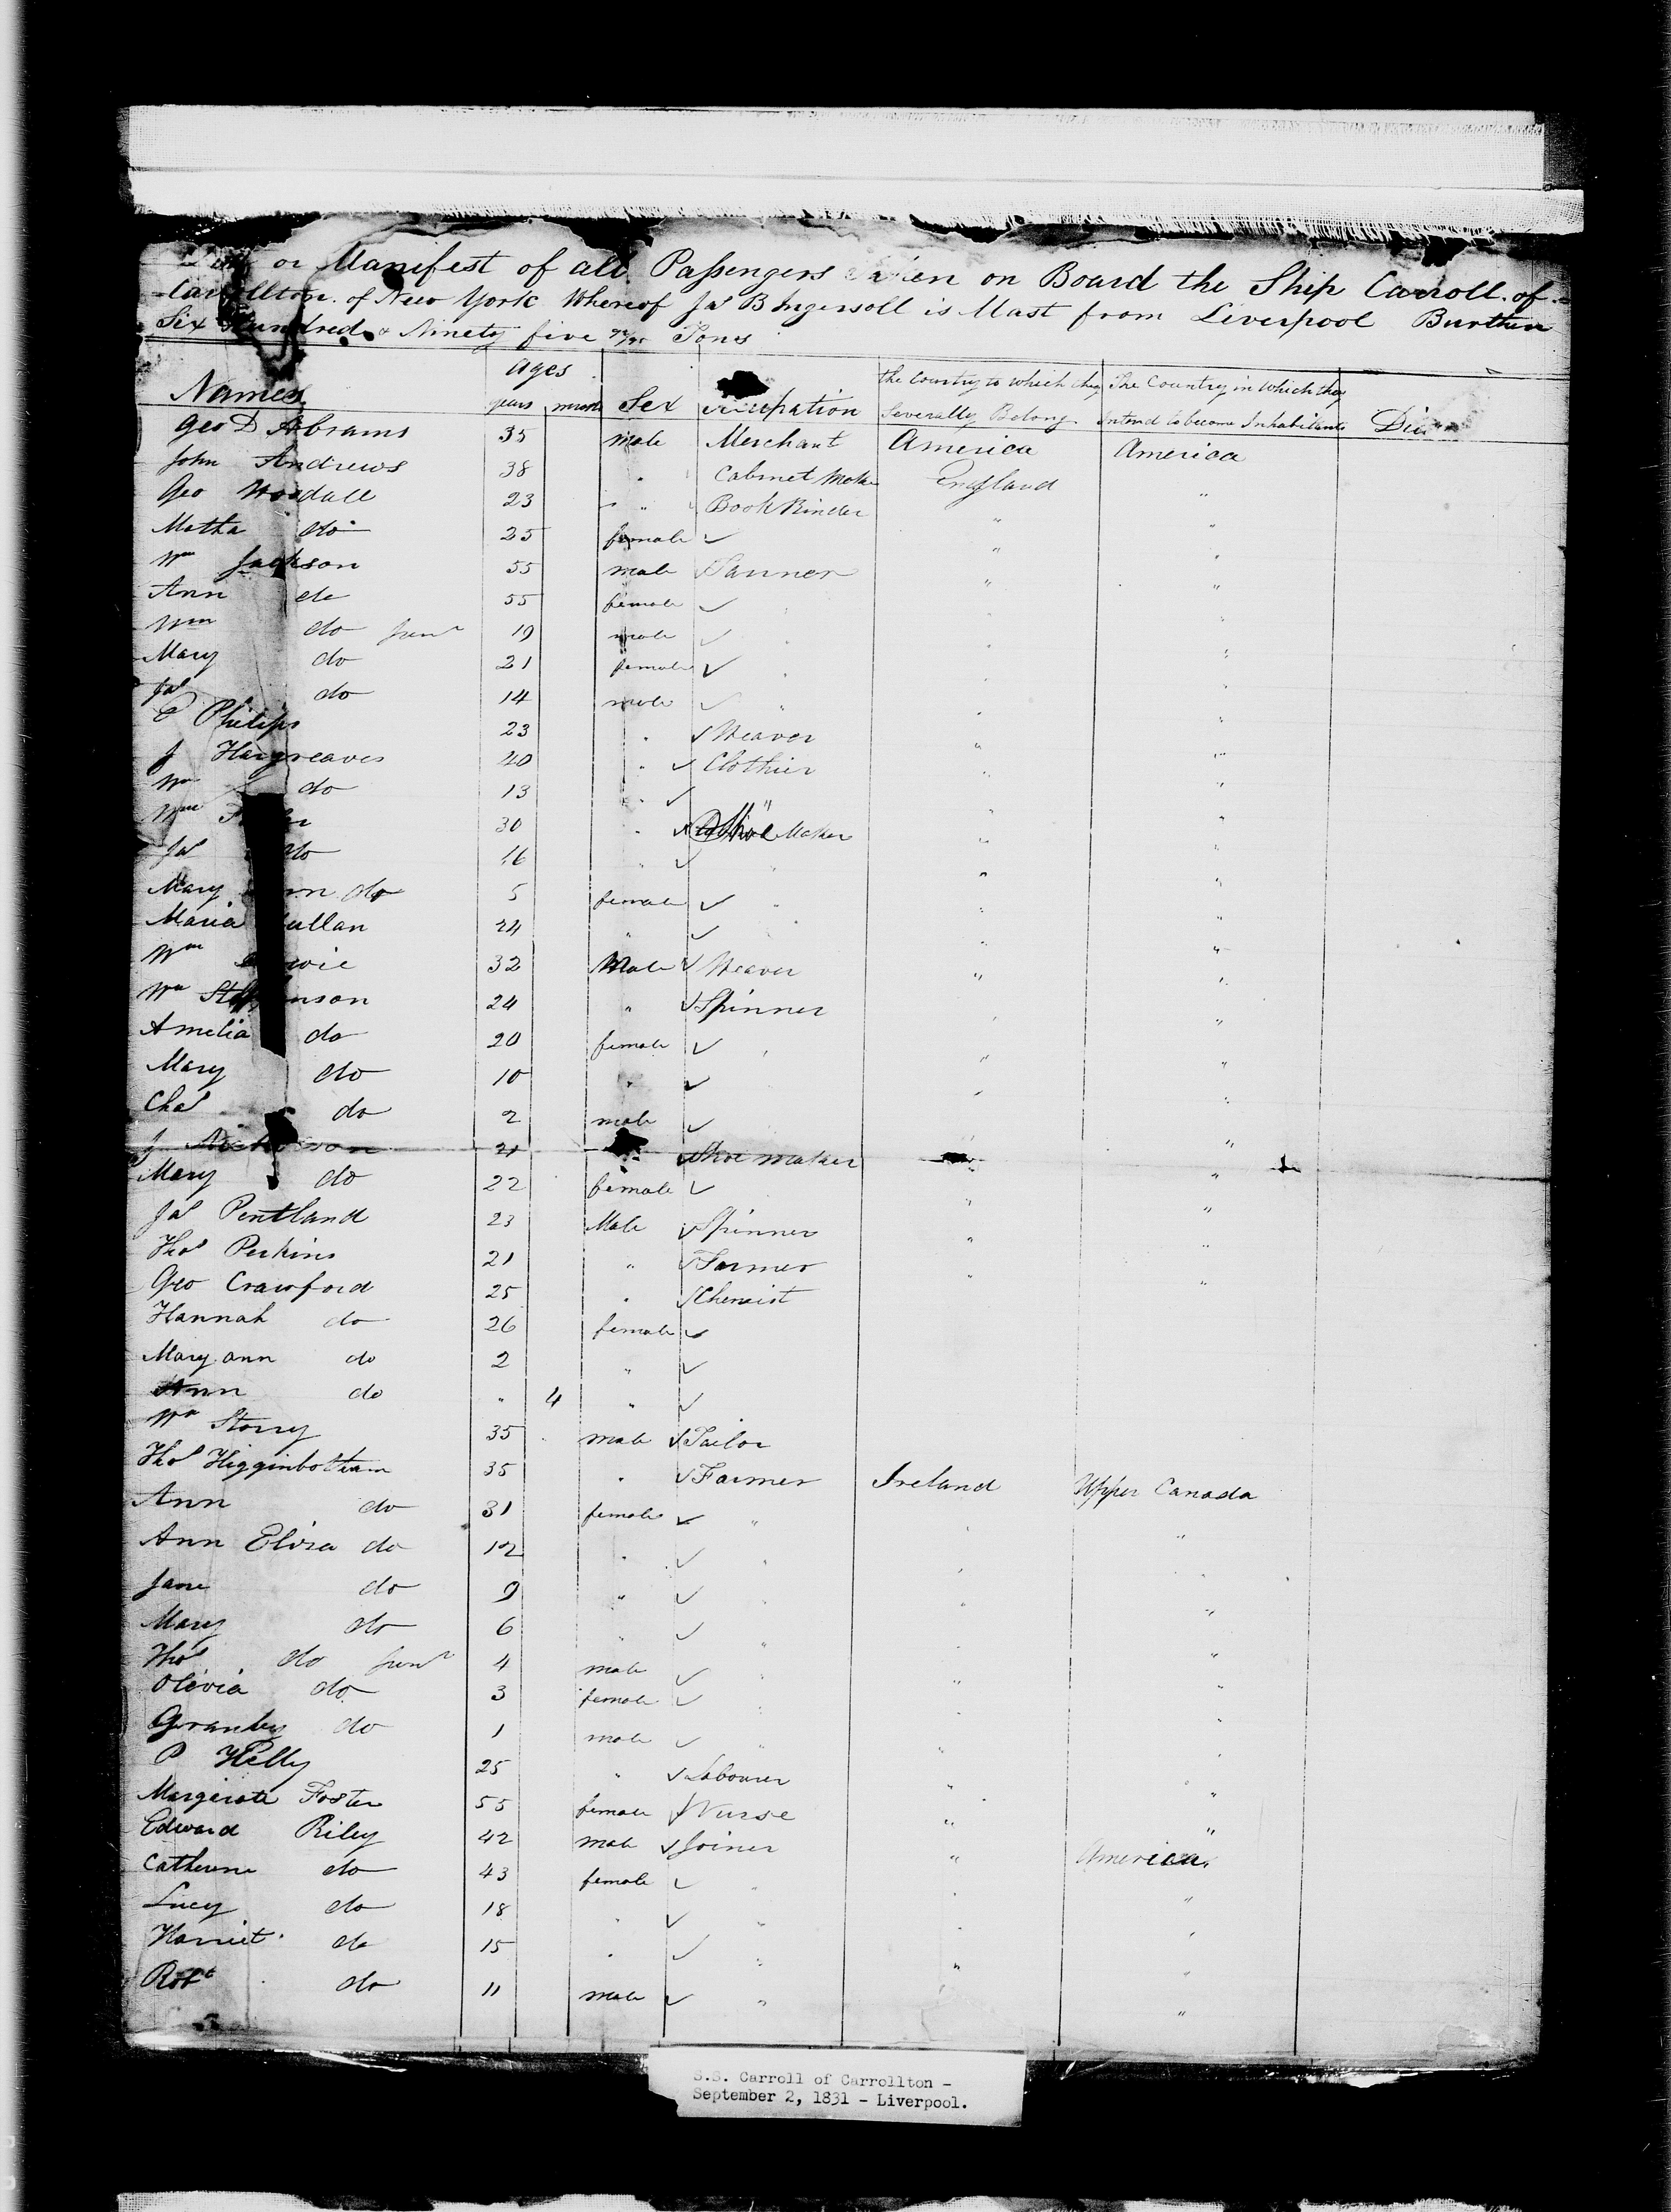 or Manifest of all Passengers Taken on Board the Ship Carroll of
Carrollton of New York Whereof Jas B Ingersoll is Mast from Liverpool Burthen
Six Hundred & Ninety five Tons
Ages
Names years months Sex Occupation the Country to which they Severally Belong The Country in Which they intend to become Inhabitants
Geo D Abrams 35 male Merchant America America
John Andrews 38 " Cabinet Maker England "
Geo Woodall 23 " Book Binder " "
Matha do 25 female ✓ " "
Wm Jackson 55 male ✓ Tanner " "
Ann do 55 female ✓ " "
Wm do Junr 19 male ✓ " "
Mary do 21 female ✓ " "
Jas do 14 male ✓ " "
Philips 23 " ✓ Weaver " "
J Hargreaves 40 " ✓ Clothier " "
Wm do 13 " ✓ " "
Wm 30 " ✓ Shoe Maker " "
Jas do 16 " ✓ " "
Mary Ann do 5 female ✓ " "
Maria 24 " ✓ " "
Wm 32 Male ✓ Weaver " "
Wm Stephenson 24 " ✓ Spinner " "
Amelia do 20 female ✓ " "
Mary do 10 " ✓ " "
Chas do 2 male ✓ "
J Nicholson 21 Shoe maker "
Mary do 22 female ✓ " "
Jas Pentland 23 Male ✓ Spinner " "
Thos Perkins 21 " ✓ Farmer " "
Geo Crawford 25 " ✓ Chemist
Hannah do 26 female ✓
Mary ann do 2 " ✓
Ann do " 4 " ✓
Wm Storry 35 male ✓ Tailor
Thos Higginbotham 35 " ✓ Farmer Ireland Upper Canada
Ann do 31 female ✓ " " "
Ann Eliza do 12 " ✓ " " "
Jane do 9 " ✓ " " "
Mary do 6 " ✓ " " "
Thos do Junr 4 male ✓ " " "
Olivia do 3 female ✓ " " "
Granby do 1 male ✓ " " "
P Kelly 25 " ✓ Labourer " "
Margerate Foster 55 female ✓ Nurse " "
Edward Riley 42 male ✓ Joiner " America
Catherine do 43 female ✓ " " "
Lucy do 18 " ✓ " " "
Harriet do 15 " ✓ " " "
Robt do 11 male ✓ " "
S.S. Carroll of Carrollton -
September 2, 1831 - Liverpool.